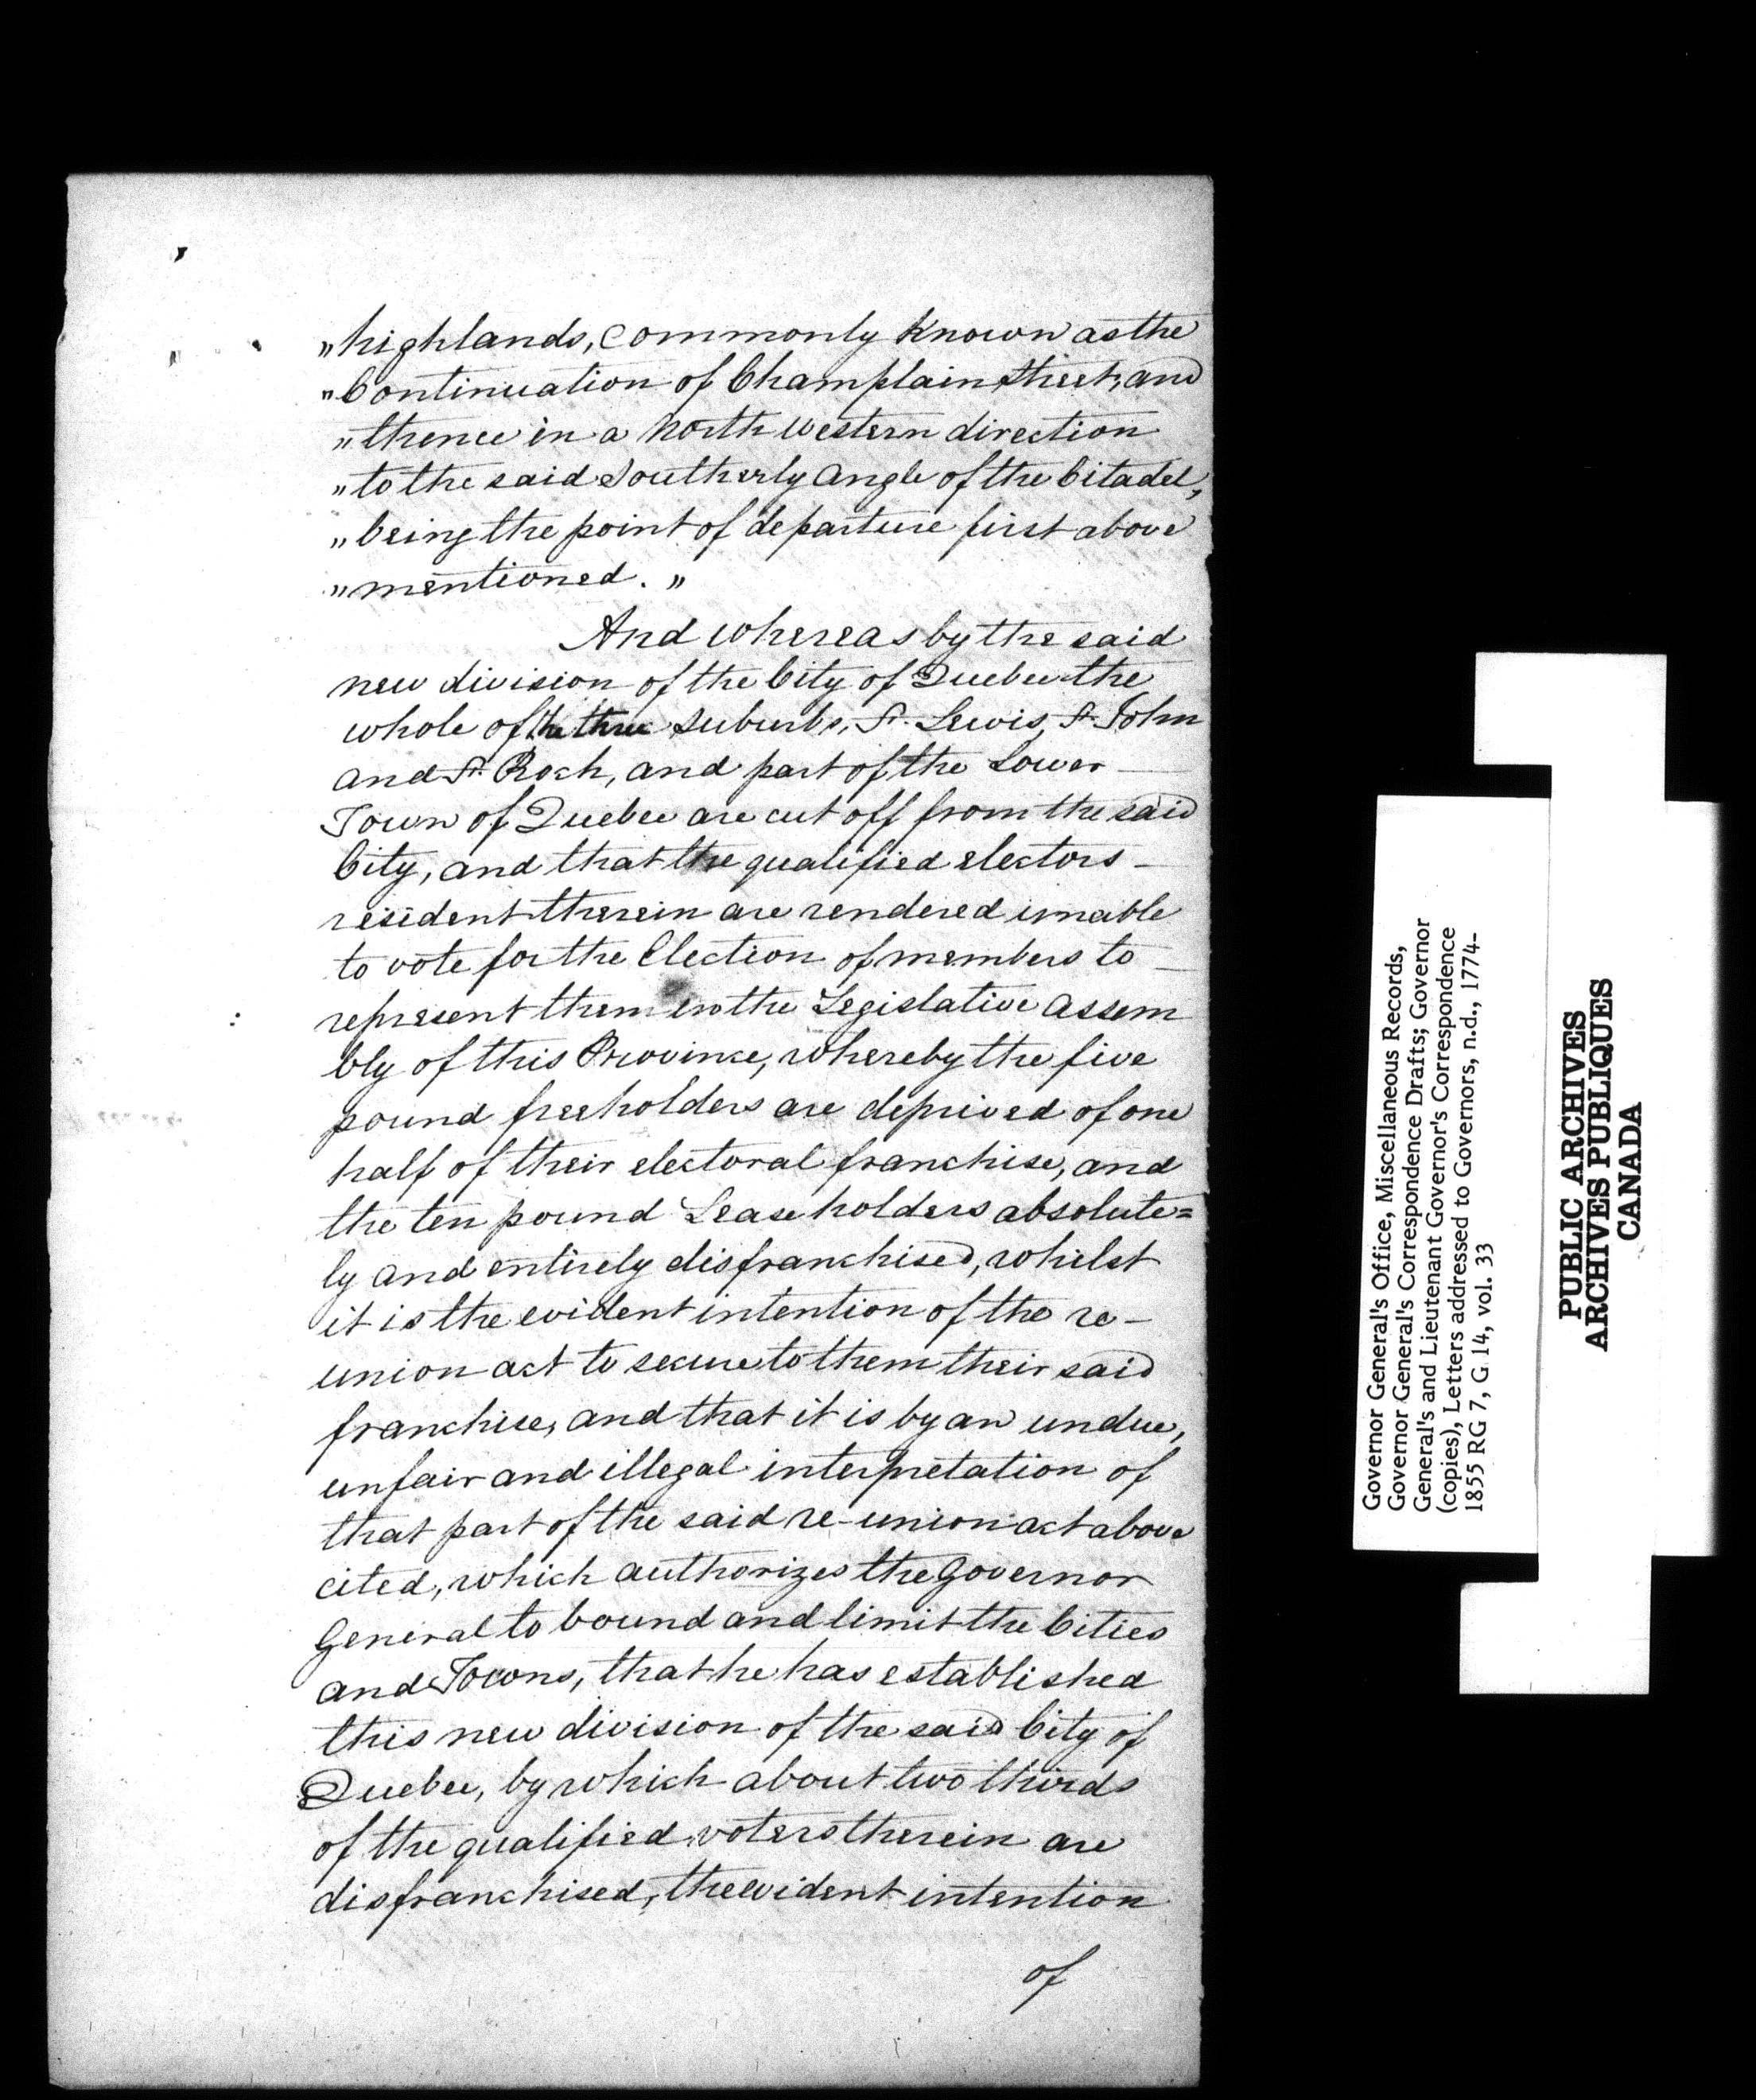 „highlands, Commonly Known as the
„Continuation of Champlain Street, and
„thence in a North Western direction
„to the said Southerly Angle of the Citadel,
„being the point of departure first above
„mentioned.„
And whereas by the said
new division of the City of Quebec the
whole of the three suburbs, St. Lewis, St. John
and St. Roch, and part of the Lower
Town of Quebec are cut off from the said
City, and that the qualified electors
resident therein are rendered unable
to vote for the Election of members to
represent them in the Legislative Assem
bly of this Province, whereby the five
pound freeholders are deprived of one
half of their electoral franchise, and
the ten pound Leaseholders absolute=
ly and entirely disfranchised, whilst
it is the evident intention of the re-
union act to secure to them their said
franchise, and that it is by an undue,
unfair and illegal interpretation of
that part of the said re-union act above
cited, which authorizes the Governor
General to bound and limit the Cities
and Towns, that he has established
this new division of the said City of
Quebec, by which about two thirds
of the qualified voters therein are
disfranchised, the evident intention
of
Governor General's Office, Miscellaneous Records,
Governor General's Correspondence Drafts; Governor
General's and Lieutenant Governor's Correspondence
(copies), Letters addressed to Governors, n.d., 1774-
1855 RG 7, G 14, vol. 33
PUBLIC ARCHIVES
ARCHIVES PUBLIQUES
CANADA